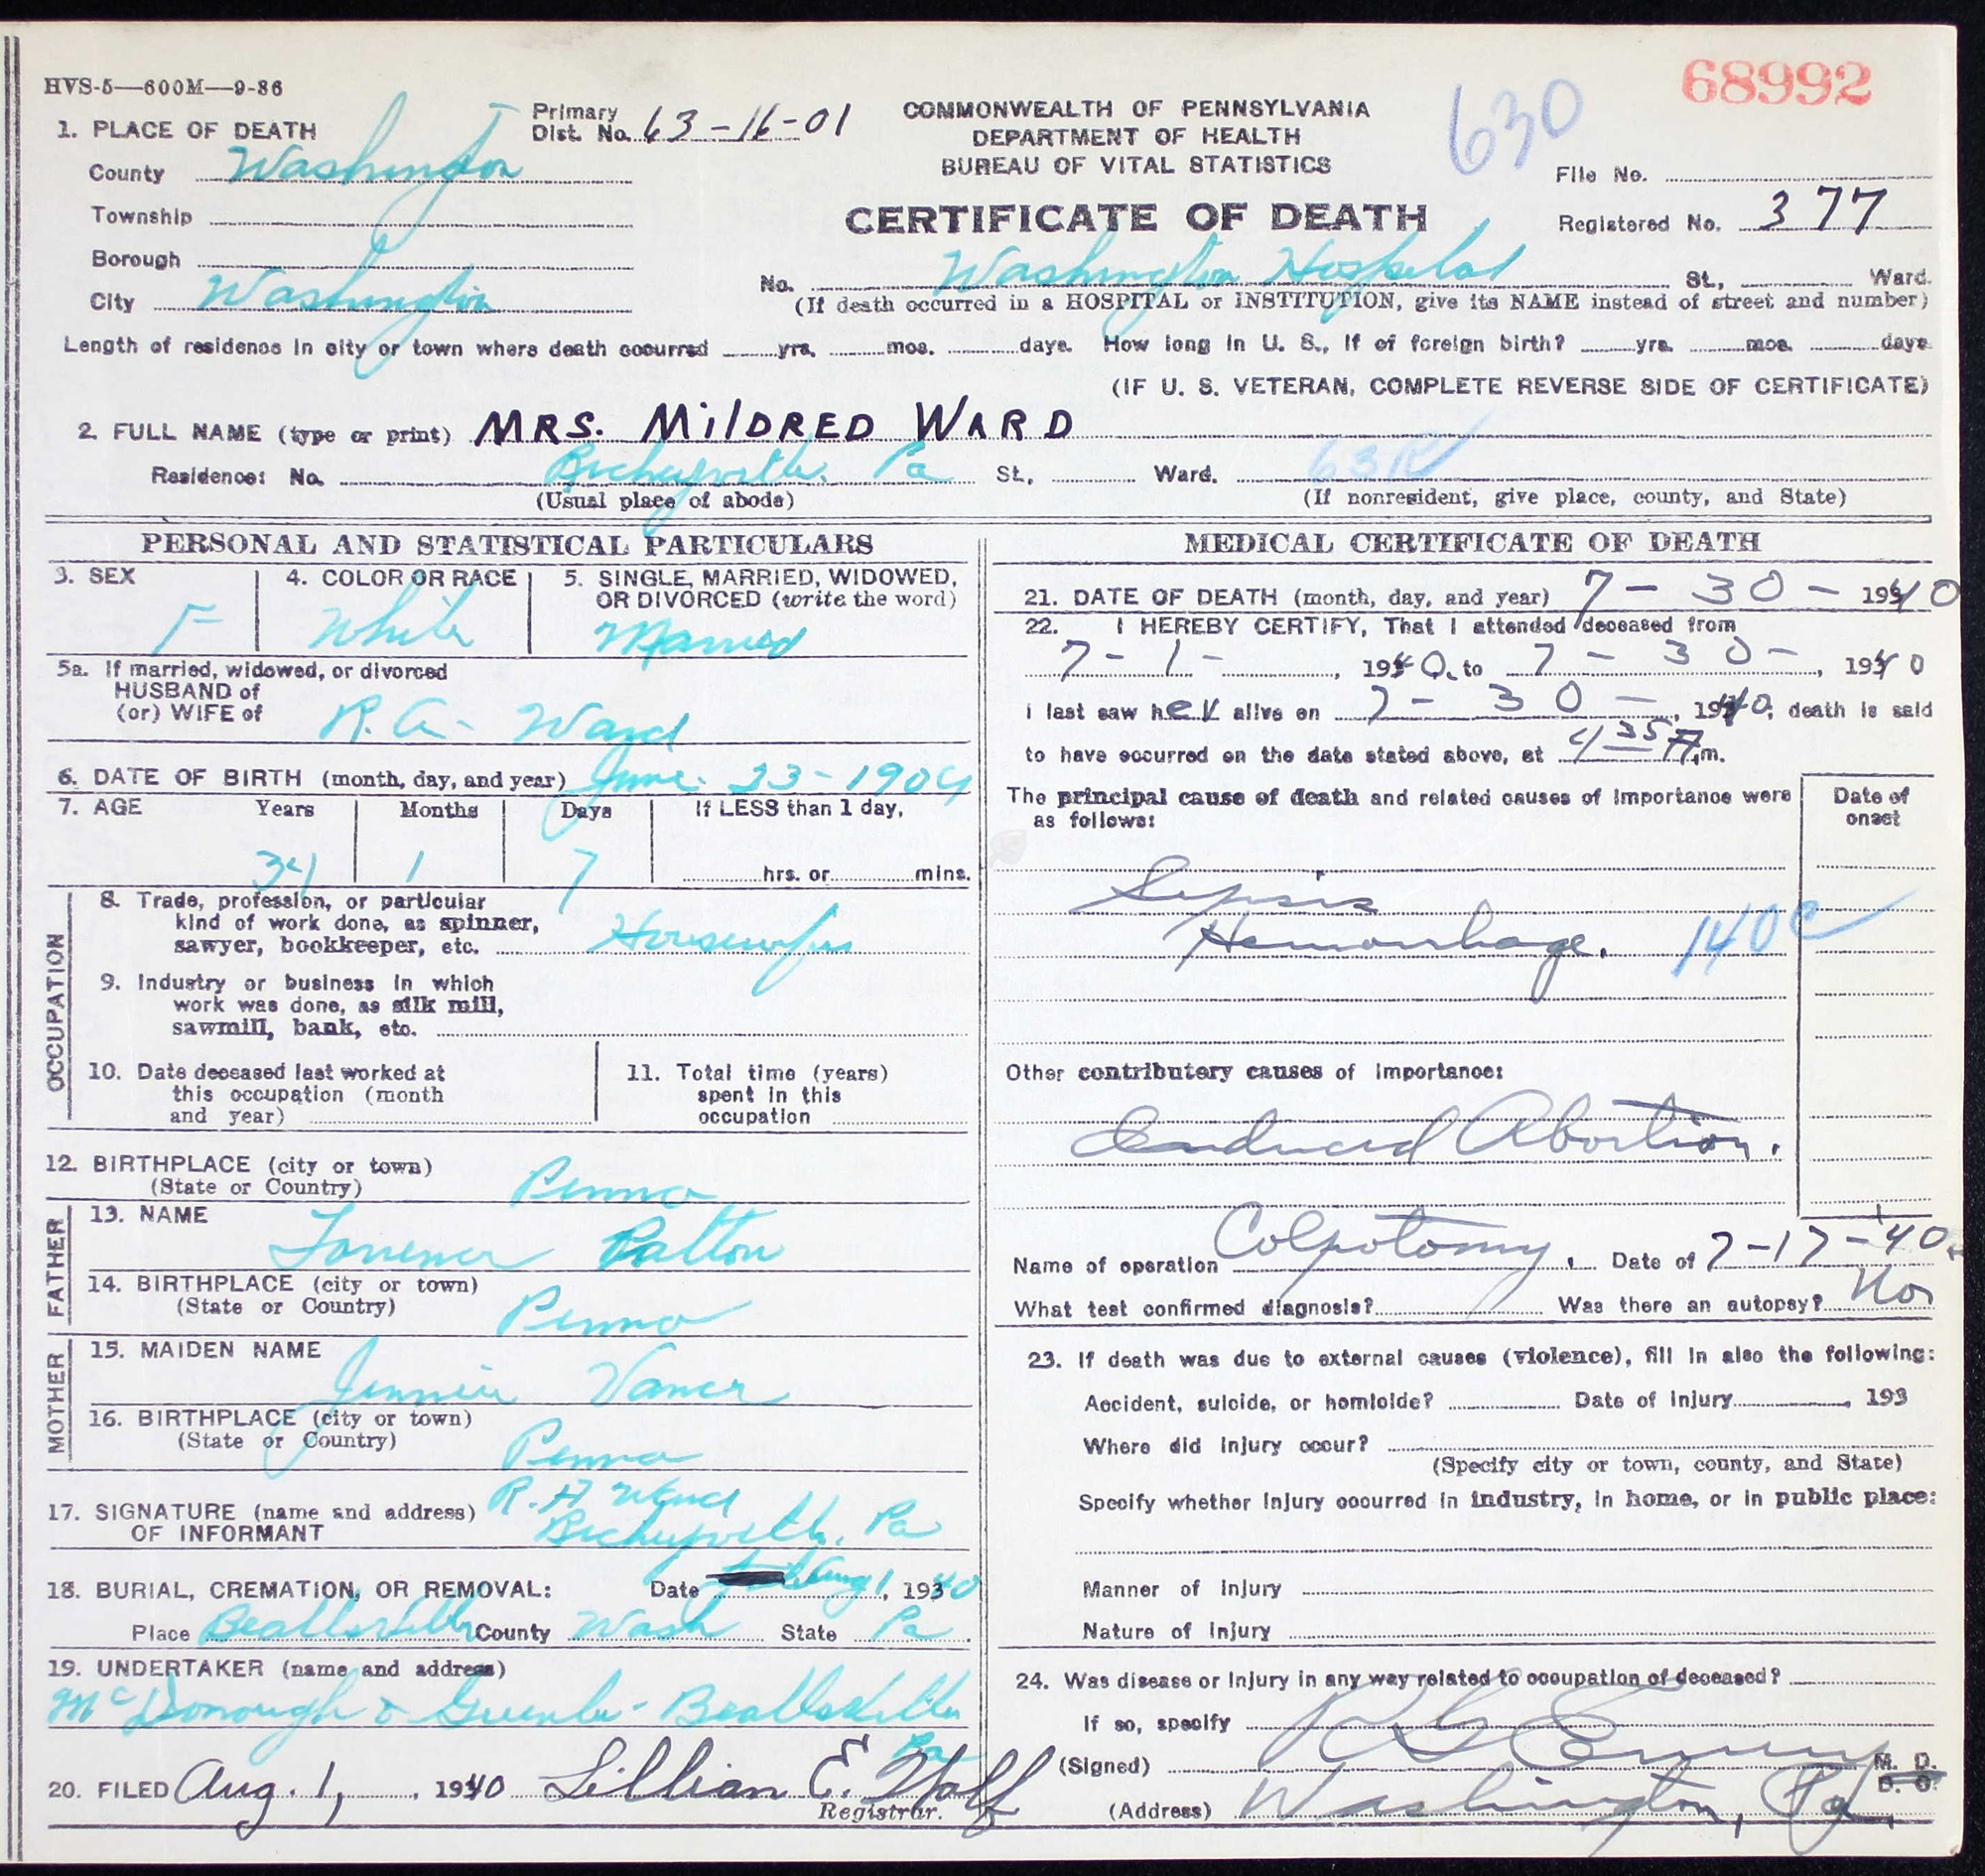 HVS-5—600M—9-36
68992
630
1. PLACE OF DEATH
Primary Dist. No. 63-16-01
COMMONWEALTH OF PENNSYLVANIA
DEPARTMENT OF HEALTH
BUREAU OF VITAL STATISTICS
County Washington
File No.
Township
CERTIFICATE OF DEATH
Registered No. 377
Borough
City Washington
No. Washington Hospital St., Ward.
(If death occurred in a HOSPITAL or INSTITUTION, give its NAME instead of street and number)
Length of residence in city or town where death occurred yrs. mos. days. How long in U. S., if of foreign birth? yrs. mos. days
(IF U. S. VETERAN, COMPLETE REVERSE SIDE OF CERTIFICATE)
2. FULL NAME (type or print) MRS. MilDRED WARD
Residence: No. Pa St., Ward. 63R
(Usual place of abode)
(If nonresident, give place, county, and State)
PERSONAL AND STATISTICAL PARTICULARS
3. SEX
F
4. COLOR OR RACE
White
5. SINGLE, MARRIED, WIDOWED, OR DIVORCED (write the word)
Married
5a. If married, widowed, or divorced
HUSBAND of
(or) WIFE of R. A. Ward
6. DATE OF BIRTH (month, day, and year) June 23-1904
7. AGE Years Months Days If LESS than 1 day,
1 7 hrs. or mins.
OCCUPATION
8. Trade, profession, or particular
kind of work done, as spinner,
sawyer, bookkeeper, etc. Housewife
9. Industry or business in which
work was done, as silk mill,
sawmill, bank, etc.
10. Date deceased last worked at
this occupation (month
and year)
11. Total time (years)
spent in this
occupation
12. BIRTHPLACE (city or town)
(State or Country) Penna
FATHER
13. NAME
Patton
14. BIRTHPLACE (city or town)
(State or Country) Penna
MOTHER
15. MAIDEN NAME
Jennie
16. BIRTHPLACE (city or town)
(State or Country) Penna
17. SIGNATURE (name and address) R. A Ward
OF INFORMANT Pa
18. BURIAL, CREMATION, OR REMOVAL: Date Aug 1, 1940
Place Beallsville County Wash State Pa.
19. UNDERTAKER (name and address)
McDonough & Beallsville
Pa
20. FILED Aug. 1, 1940 Lillian E.
Registrar.
MEDICAL CERTIFICATE OF DEATH
21. DATE OF DEATH (month, day, and year) 7-30-1940
22. I HEREBY CERTIFY, That I attended deceased from
7-1-, 1940, to 7-30-, 1940
I last saw her alive on 7-30-, 1940, death is said
to have occurred on the date stated above, at 4 35 A.m.
The principal cause of death and related causes of importance were
as follows:
Date of
onset
Sepsis
Hemorrhage. 140c
Other contributory causes of importance:
Induced Abortion.
Name of operation Colpotomy. Date of 7-17-40
What test confirmed diagnosis? Was there an autopsy? No
23. If death was due to external causes (violence), fill in also the following:
Accident, suicide, or homicide? Date of injury, 193
Where did injury occur?
(Specify city or town, county, and State)
Specify whether injury occurred in industry, in home, or in public place:
Manner of injury
Nature of injury
24. Was disease or injury in any way related to occupation of deceased?
If so, specify
(Signed) M. D.
D. O.
(Address) Washington, Pa.